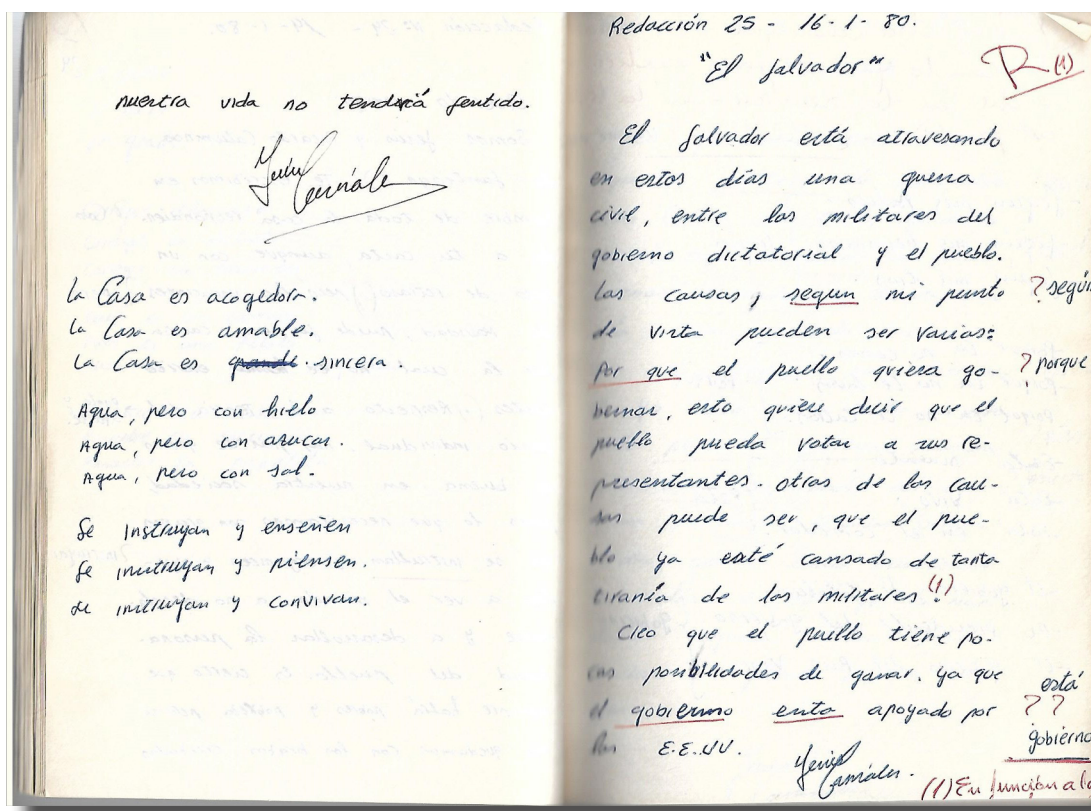 nuestra vida no tendrá sentido.
La Casa es acogedora.
La Casa es amable.
La Casa es grande sincera.
Agua, pero con hielo
Agua, pero con azucar.
Agua, pero con sal.
Se instruyan y enseñen
Se instruyan y piensen.
se instruyan y convivan.
Redacción 25 - 16-1-80.
"El Salvador"
R (1)
El Salvador está atravesando
en estos días una guerra
civil, entre los militares del
gobierno dictatorial y el pueblo.
Las causas, segun mi punto ? según
de vista pueden ser varias:
Por que el pueblo quiera go- ? porque
bernar, esto quiere decir que el
pueblo pueda votar a sus re-
presentantes. otras de las cau-
sas puede ser, que el pue-
blo ya esté cansado de tanta
tiranía de los militares (1)!
Creo que el pueblo tiene po-
cas posibilidades de ganar. ya que está
el gobierno esta apoyado por ? ?
los E.E.U.U. gobierno
(1) En función a lo